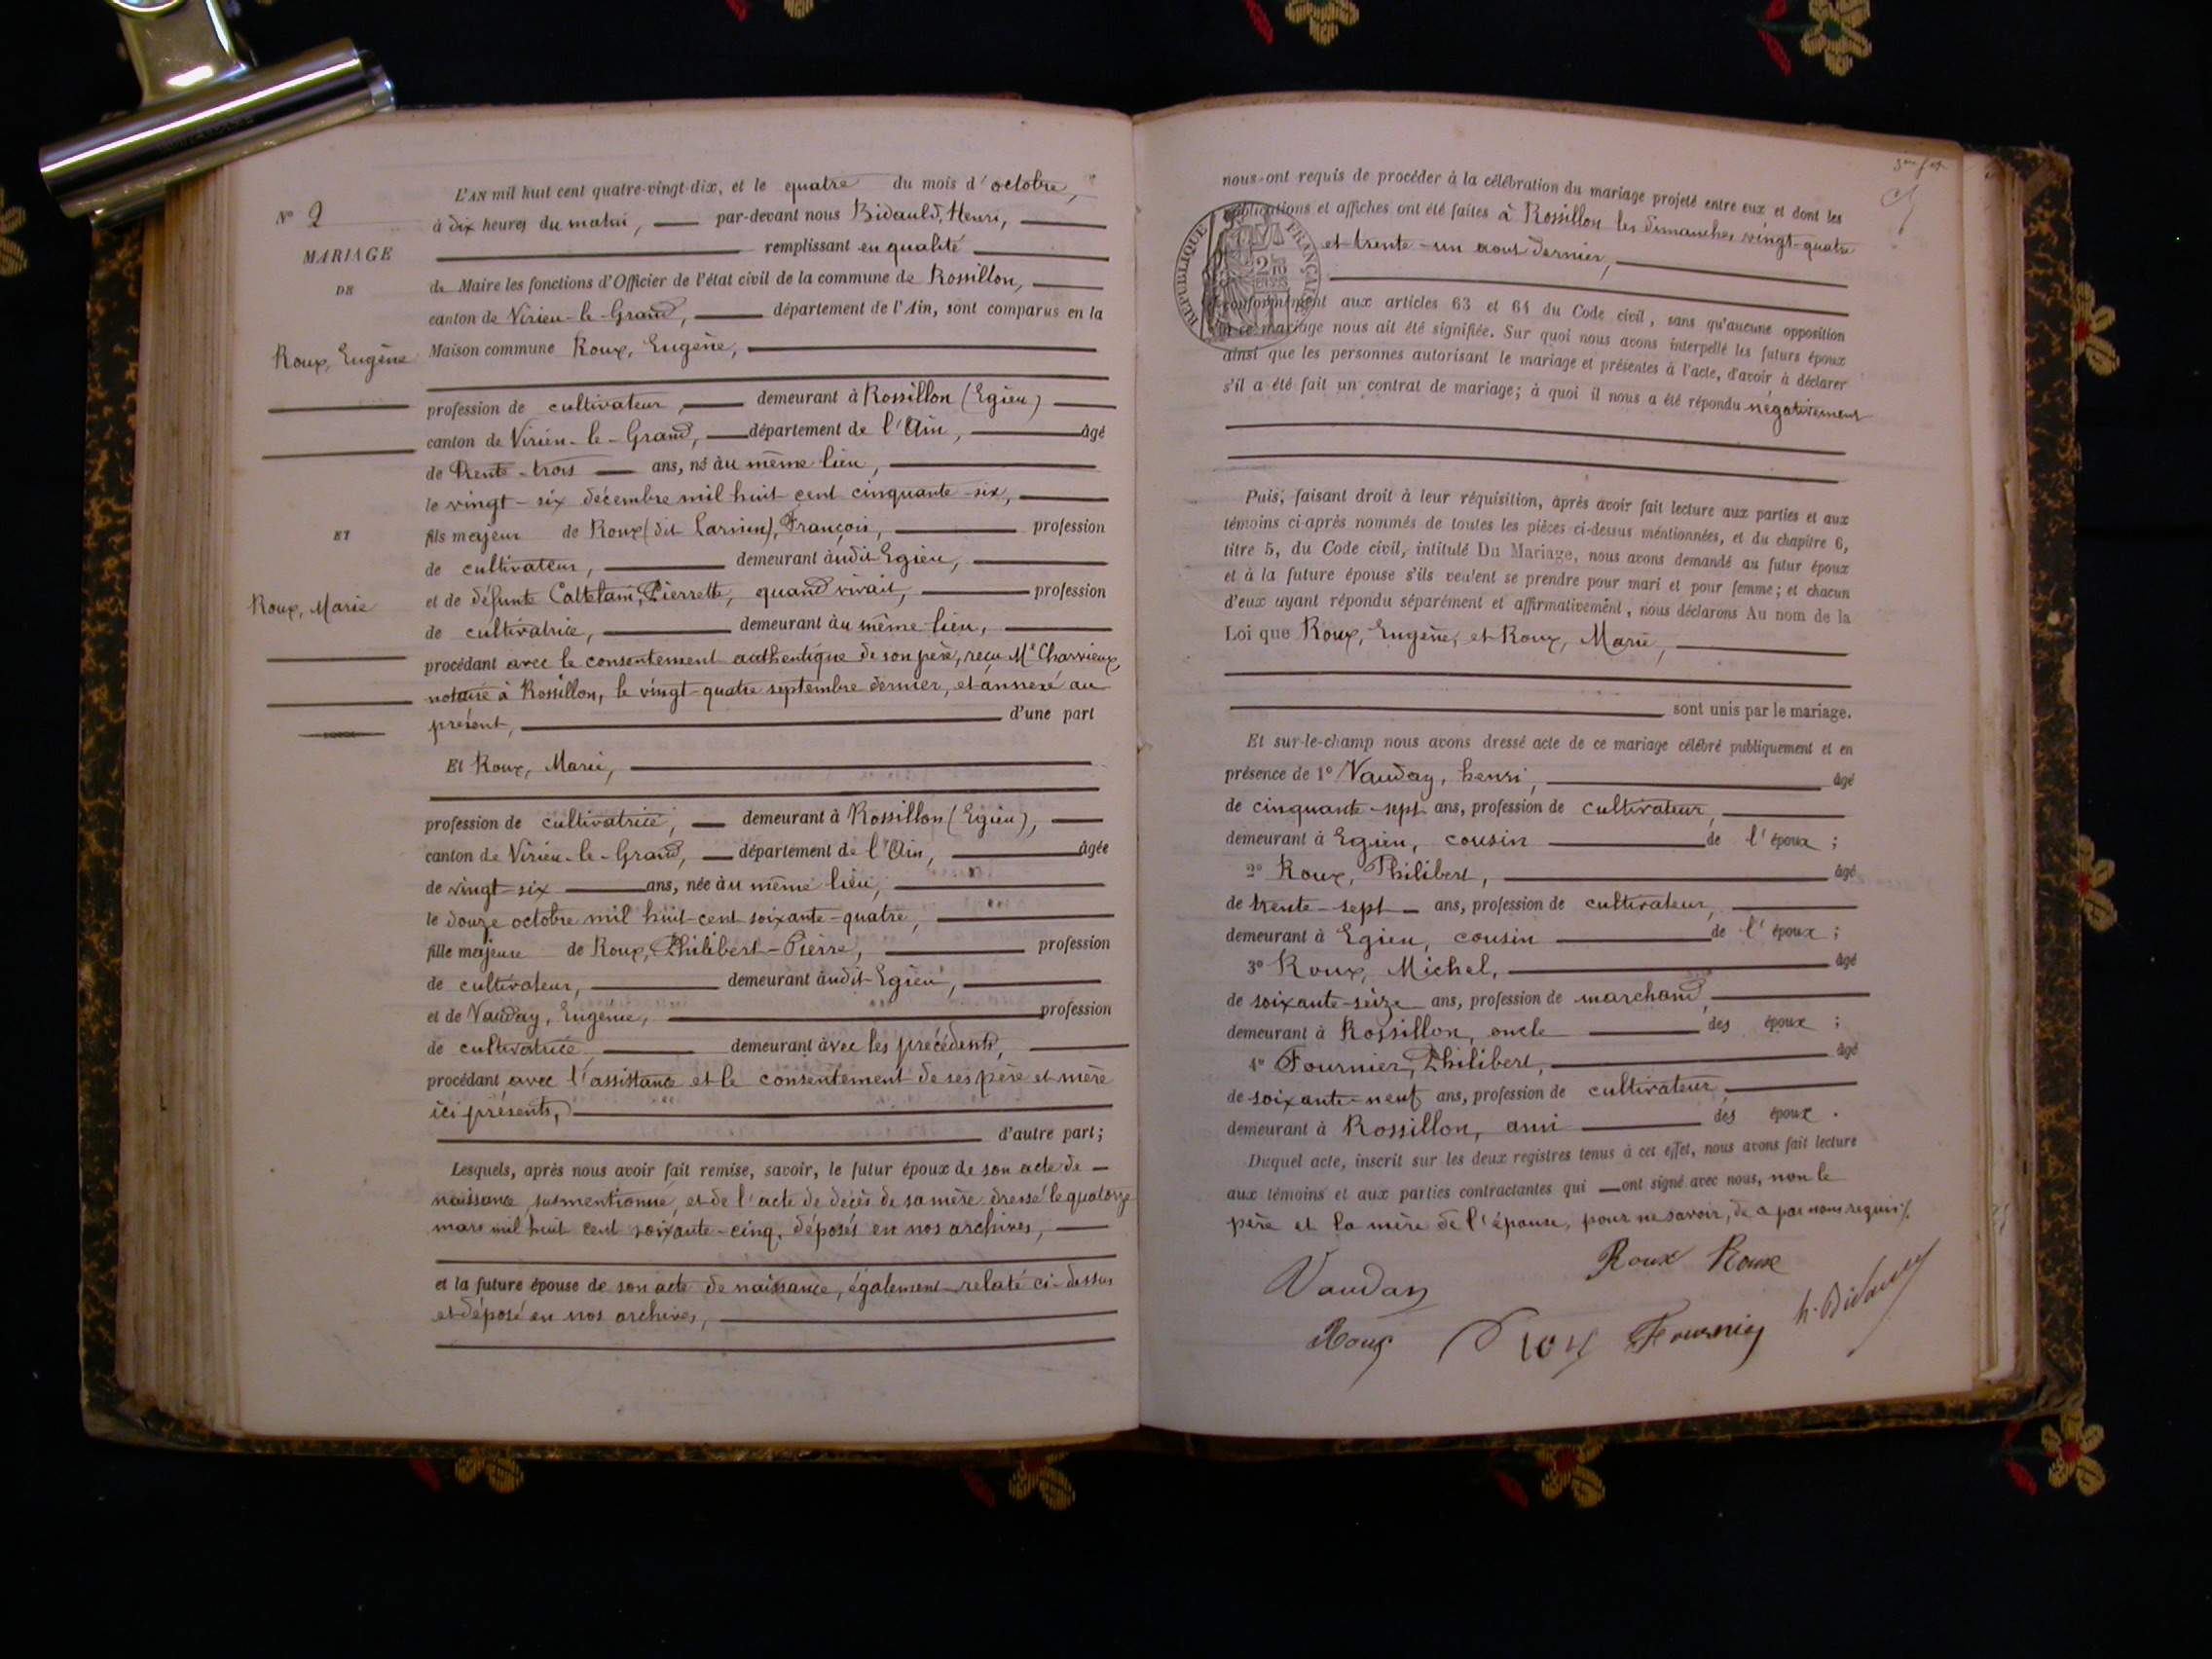 L'AN mil huit cent quatre-vingt-dix, et le quatre du mois d'octobre,
N° 2
à dix heures du matin, par-devant nous Bidauld, Henri,
MARIAGE
remplissant en qualité
DE
de Maire les fonctions d'Officier de l'état civil de la commune de Rossillon,
canton de Virieu-le-Grand, département de l'Ain, sont comparus en la
Roux, Eugène
Maison commune Roux, Eugène,
profession de cultivateur, demeurant à Rossillon (Egieu)
canton de Virieu-le-Grand, département de l'Ain, âgé
de trente-trois ans, né au même lieu,
le vingt-six décembre mil huit cent cinquante-six,
ET
fils majeur de Roux (dit Larnin), François, profession
de cultivateur, demeurant audit Egieu,
et de défunte Cattelain, Pierrette, quand vivait, profession
Roux, Marie
de cultivatrice, demeurant au même lieu,
procédant avec le consentement authentique de son père, reçu Me Charvieux,
notaire à Rossillon, le vingt-quatre septembre dernier, et annexé au
présent, d'une part
Et Roux, Marie,
profession de cultivatrice, demeurant à Rossillon (Egieu),
canton de Virieu-le-Grand, département de l'Ain, âgée
de vingt-six ans, née au même lieu,
le douze octobre mil huit-cent soixante-quatre,
fille majeure de Roux, Philibert-Pierre, profession
de cultivateur, demeurant audit-Egieu,
et de Vauday, Eugénie, profession
de cultivatrice, demeurant avec les précédents,
procédant avec l'assistance et le consentement de ses père et mère
ici présents,
d'autre part;
Lesquels, après nous avoir fait remise, savoir, le futur époux de son acte de
naissance susmentionné, et de l'acte de décès de sa mère dressé le quatorze
mars mil huit cent soixante-cinq, déposés en nos archives,
et la future épouse de son acte de naissance, également relaté ci-dessus
et déposé en nos archives,
nous ont requis de procéder à la célébration du mariage projeté entre eux et dont les
publications et affiches ont été faites à Rossillon les dimanches vingt-quatre
et trente-un aout dernier,
RÉPUBLIQUE FRANÇAISE
conformément aux articles 63 et 64 du Code civil, sans qu'aucune opposition
mariage nous ait été signifiée. Sur quoi nous avons interpellé les futurs époux
ainsi que les personnes autorisant le mariage et présentes à l'acte, d'avoir à déclarer
s'il a été fait un contrat de mariage; à quoi il nous a été répondu négativement
Puis, faisant droit à leur réquisition, après avoir fait lecture aux parties et aux
témoins ci-après nommés de toutes les pièces ci-dessus mentionnées, et du chapitre 6,
titre 5, du Code civil, intitulé Du Mariage, nous avons demandé au futur époux
et à la future épouse s'ils veulent se prendre pour mari et pour femme; et chacun
d'eux ayant répondu séparément et affirmativement, nous déclarons Au nom de la
Loi que Roux, Eugène, et Roux, Marie,
sont unis par le mariage.
Et sur-le-champ nous avons dressé acte de ce mariage célébré publiquement et en
présence de 1° Vauday, henri, âgé
de cinquante-sept ans, profession de cultivateur,
demeurant à Egieu, cousin de l'époux;
2° Roux, Philibert, âgé
de trente-sept ans, profession de cultivateur,
demeurant à Egieu, cousin de l'époux;
3° Roux, Michel, âgé
de soixante-seize ans, profession de marchand,
demeurant à Rossillon, oncle des époux;
4° Fournier, Philibert, âgé
de soixante-neuf ans, profession de cultivateur,
demeurant à Rossillon, ami des époux.
Duquel acte, inscrit sur les deux registres tenus à cet effet, nous avons fait lecture
aux témoins et aux parties contractantes qui ont signé avec nous, non le
père et la mère de l'épouse, pour ne savoir, de ce par nous requis
Vauday Roux Roux
Roux Fournier h. Bidauld